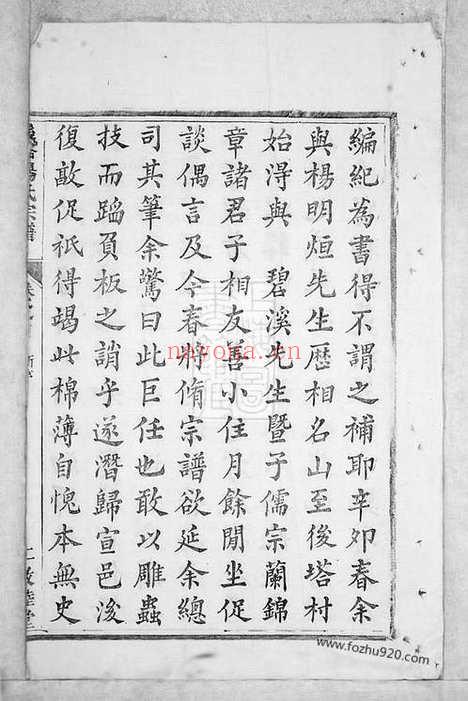 編紀為書得不謂之補耶辛卯春余
與楊明烜先生歷相名山至後塔村
始淂與　碧溪先生暨子儒宗蘭錦
章諸君子相友善小住月餘閒坐促
談偶言及今春將脩宗譜欲延余總
司其筆余驚曰此巨任也敢以雕蟲
技而蹈負板之誚乎遂潛歸宣邑浚
復敵促袛得竭此棉薄自愧本無史
楊氏宗譜
nayona.cn
www.fozhu920.com